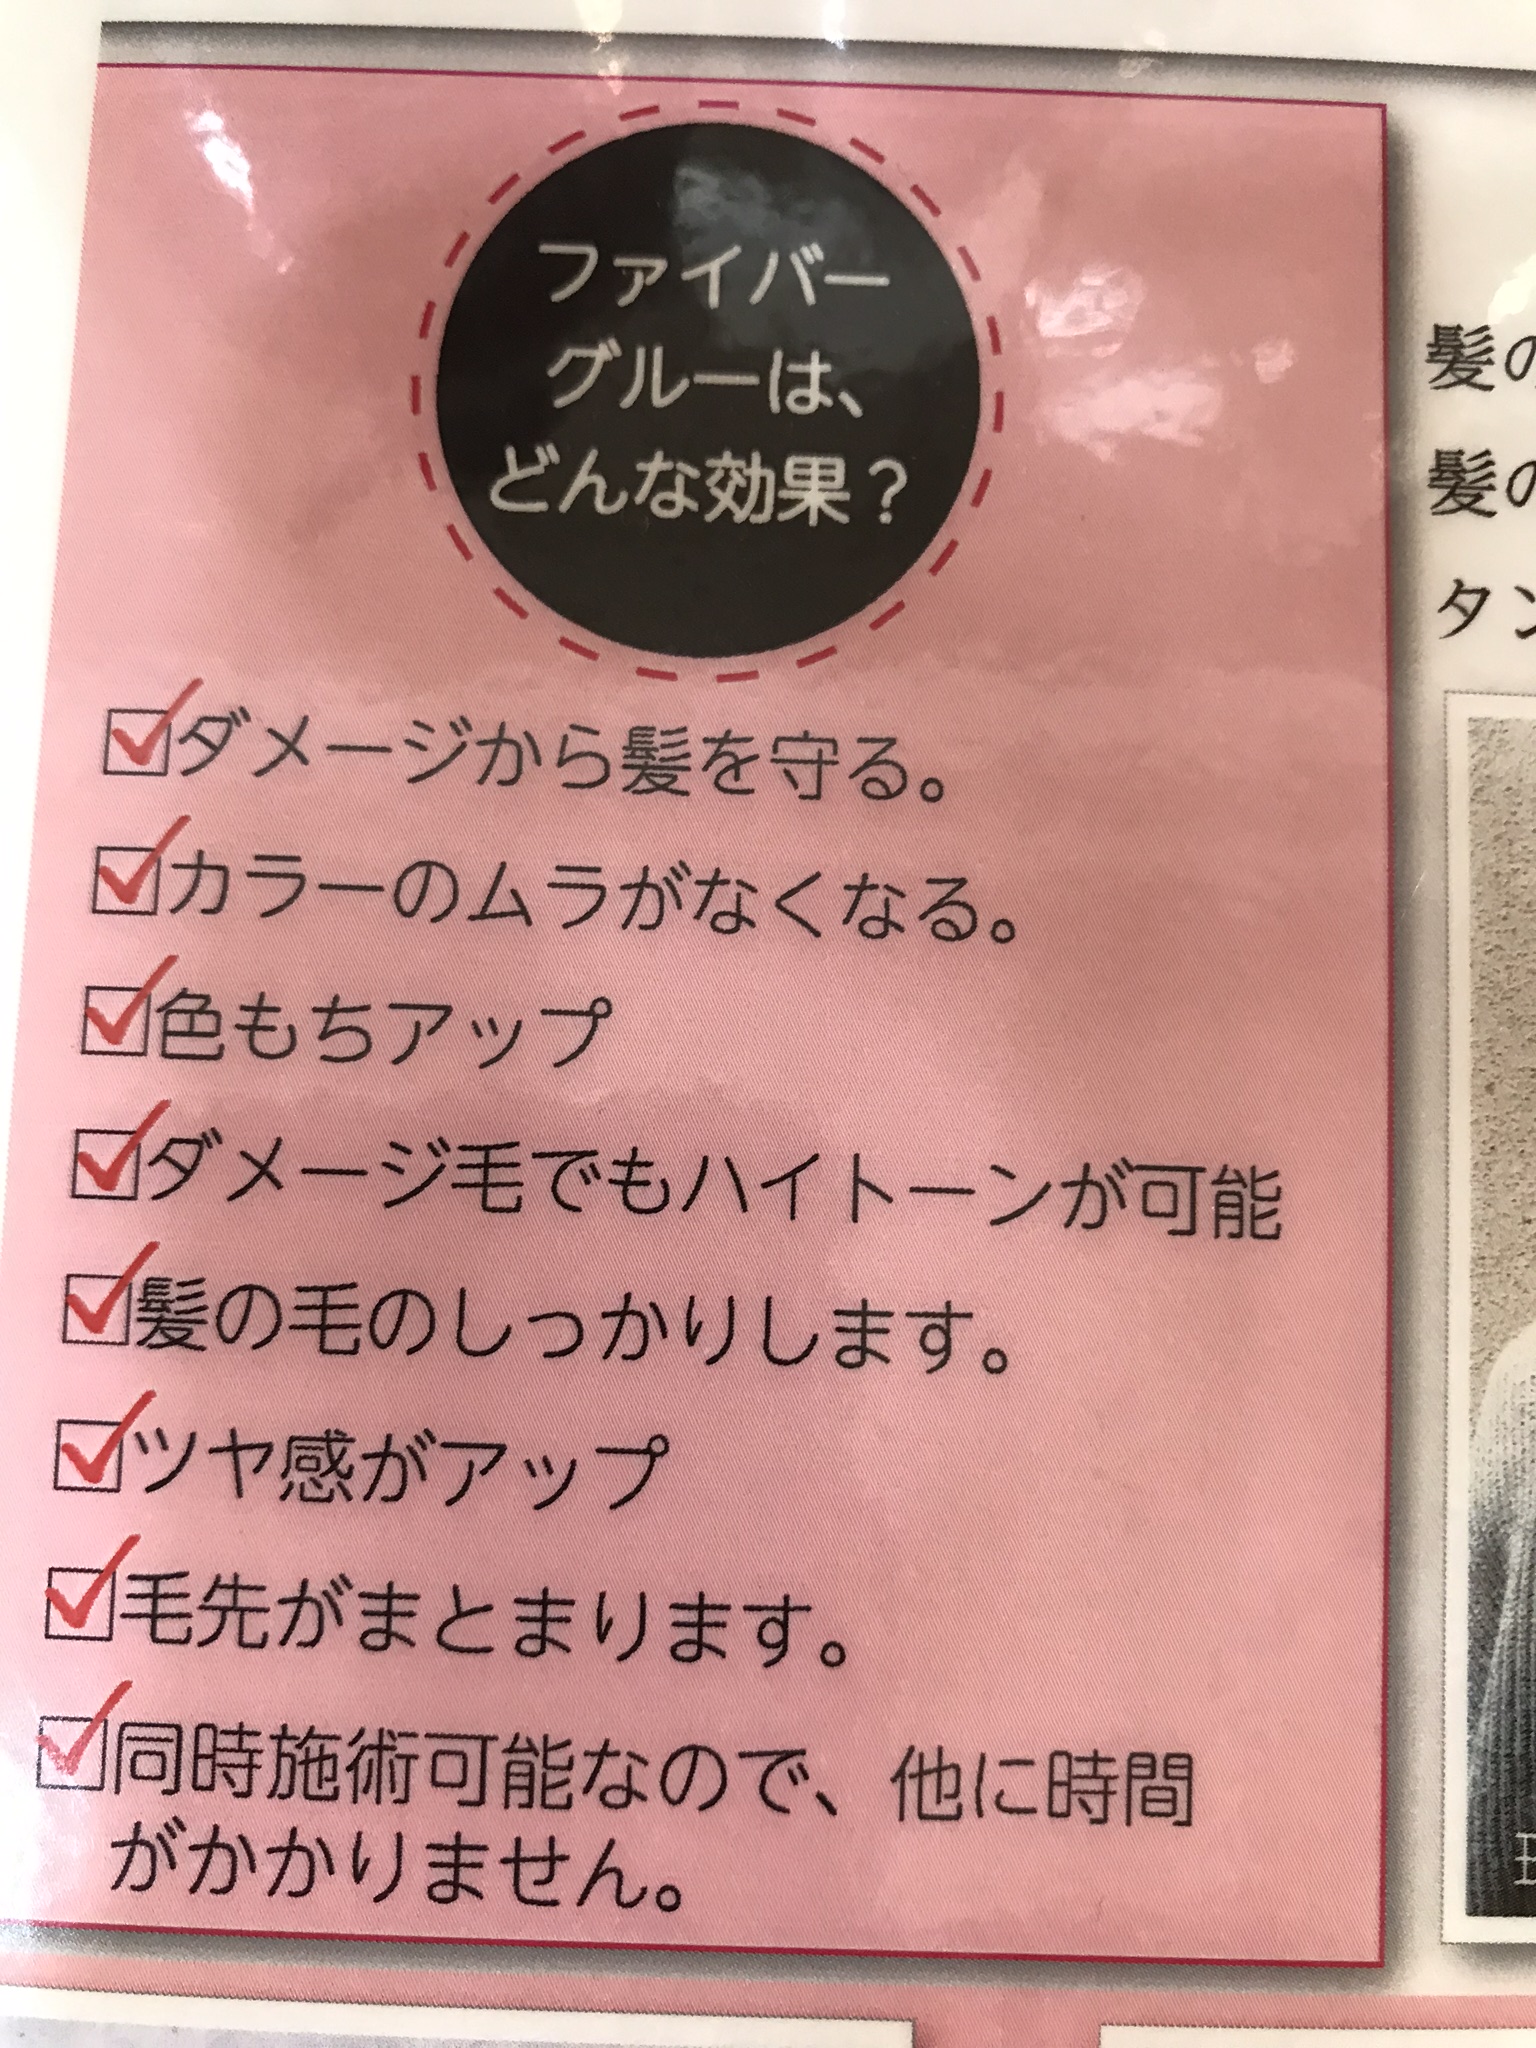 ファイバー
グルーは、
どんな効果？
ダメージから髪を守る。
カラーのムラがなくなる。
色もちアップ
ダメージ毛でもハイトーンが可能
髪の毛のしっかりします。
ツヤ感がアップ
毛先がまとまります。
同時施術可能なので、他に時間
がかかりません。
髪の
髪の
タン